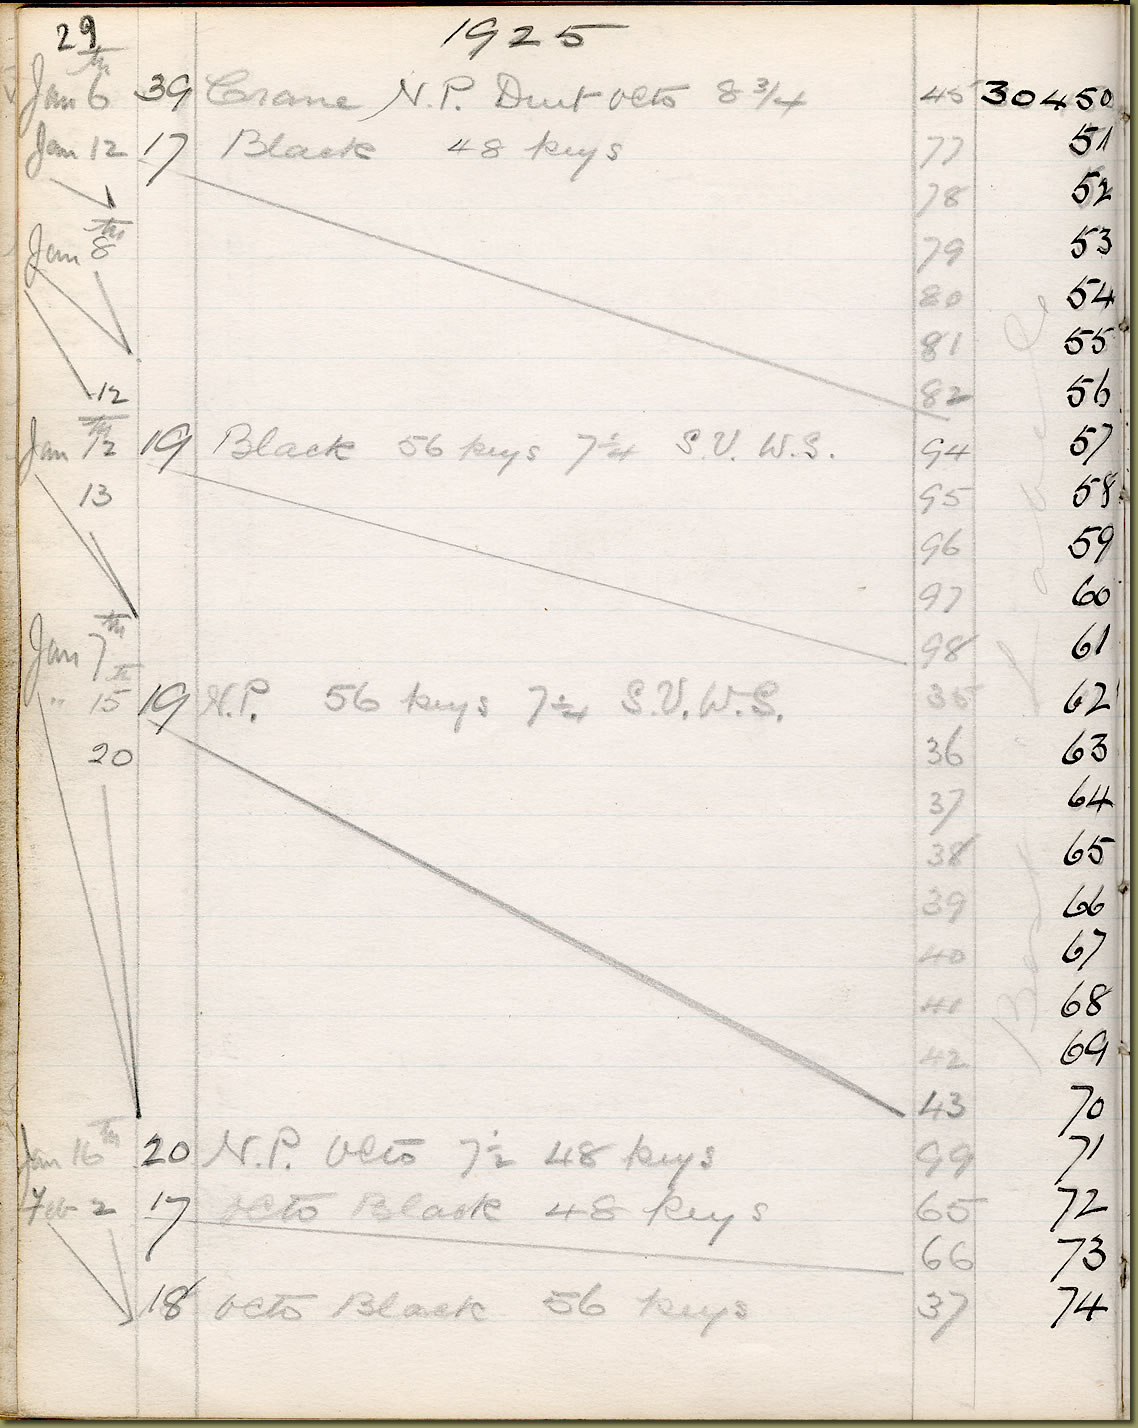 29 1925
Jan 6th 39 Crane N.P. Duet Octo 8 3/4 45 30450
Jan 12 17 Black 48 keys 77 51
78 52
Jan 8th 79 53
80 54
81 55
12 82 56
Jan 12th 19 Black 56 keys 7 1/4 S.V. W.S. 94 57
13 95 58
96 59
97 60
Jan 7th 98 61
" 15th 19 N.P. 56 keys 7 1/4 S.V. W.S. 35 62
20 36 63
37 64
38 65
39 66
40 67
41 68
42 69
43 70
Jan 16th 20 N.P. Octo 7 1/2 48 keys 99 71
Feb 2 17 Octo Black 48 keys 65 72
66 73
18 Octo Black 56 keys 37 74